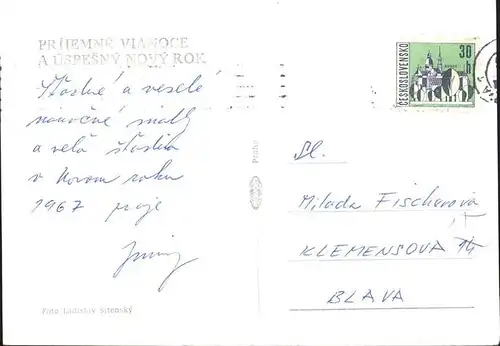 PRÍJEMNÉ VIANOCE
A ÚSPEŠNÝ NOVÝ ROK
Šťastné a veselé
vianočné sviatky
a veľa šťastia
v Novom roku
1967 praje
Foto Ladislav Sitenský
ČESKOSLOVENSKO
30 h
Sl.
Milada Fischerova
KLEMENSOVA 14
BLAVA